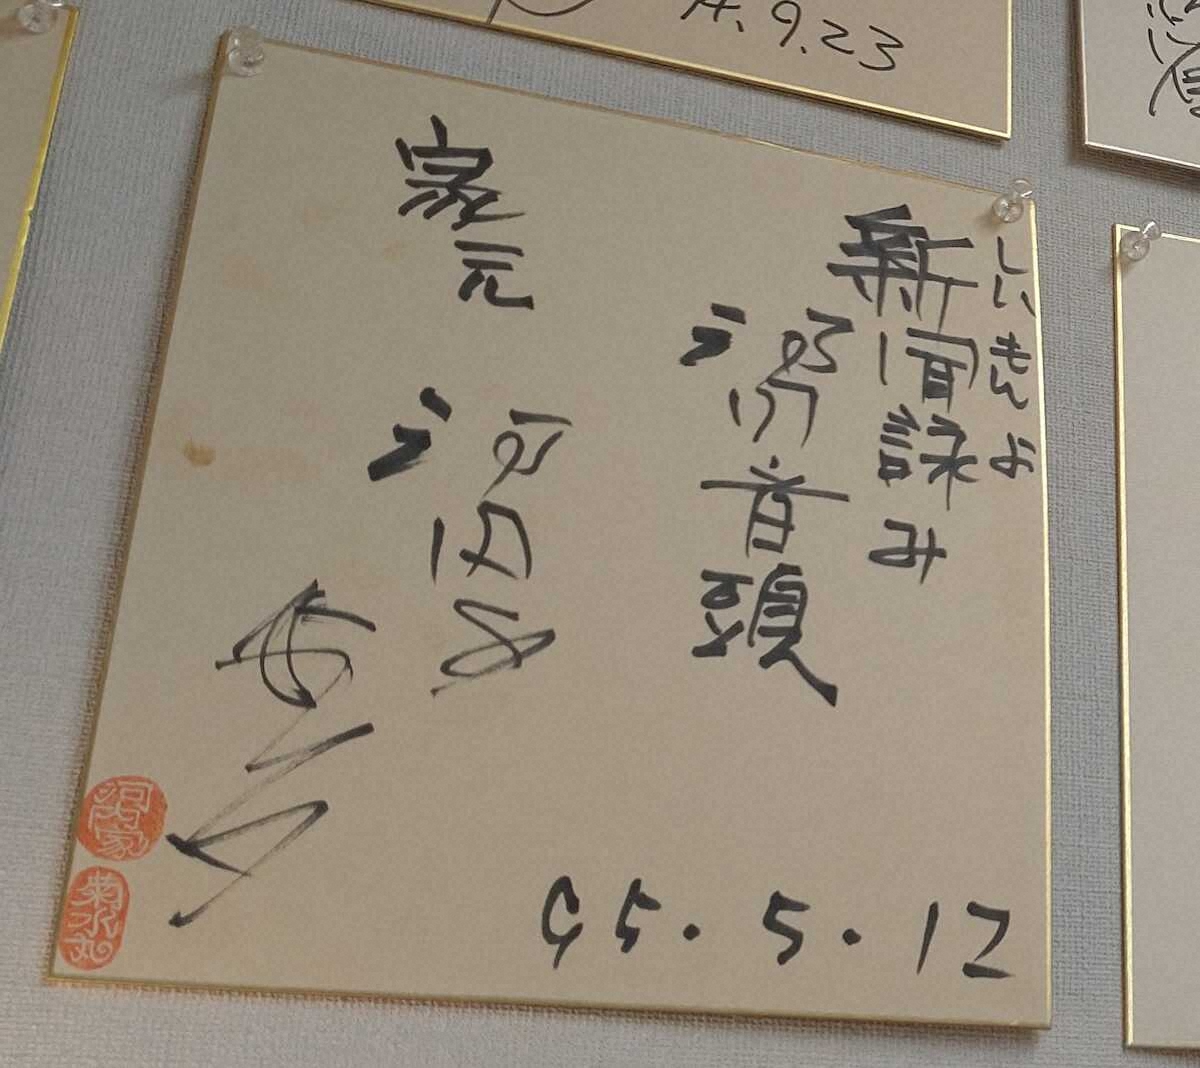 しんもんよ
新聞詠み
河内音頭
家元
河内家
菊水丸
95.5.12
河内家
菊水丸
.9.23